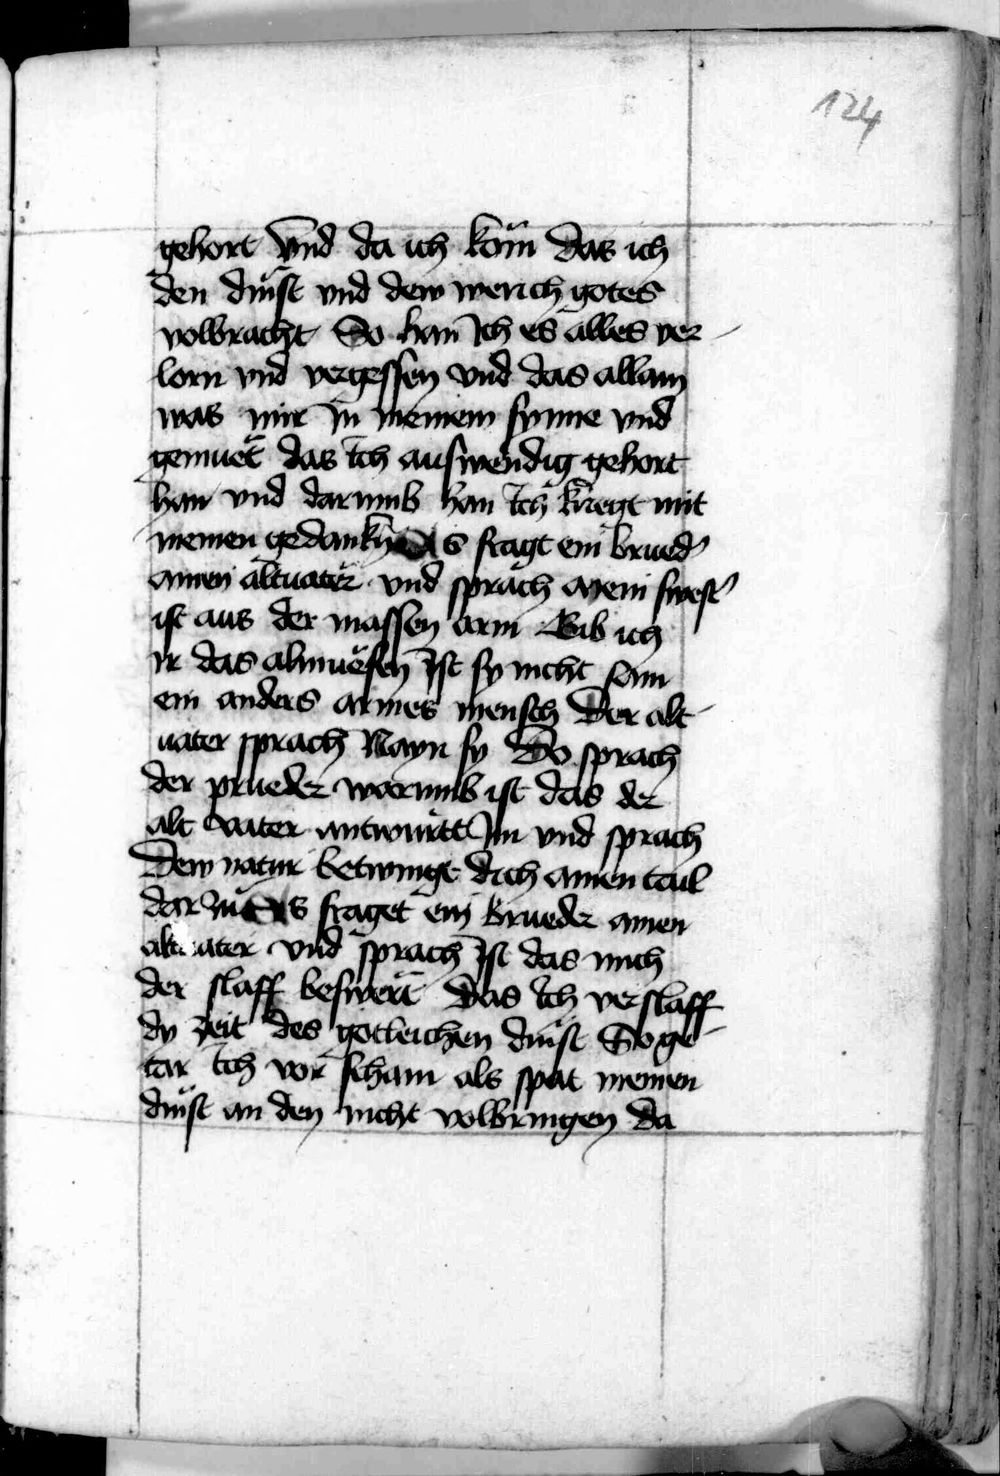 124
gehort Vnd da ich kom das ich
den dinst vnd dew werich gotes
volbracht So han Ich es alles ver
lorn vnd vergessen vnd das allain
was mir In meinem synne vnd
gemuet das Ich auswendig gehort
han vnd darumb han Ich kriegt mit
meinen gedankn Es fragt ein brued
ainen altuater vnd sprach Mein swest
ist aus der massen arm Gib ich
ir das almuesen Ist sy nicht sam
ein anders armes mensch Der alt
uater sprach Nayn sy Do sprach
der prueder warumb ist das der
alt vater antwurtt Im vnd sprach
Dew natur betwingt dich ainen tail
dar zu Es fraget ein brueder ainen
altuater vnd sprach Ist das mich
der slaff beswert Das Ich verslaff
dy zeit des gotleichen dinst So ge
tar Ich vor scham als spat meinen
dinst an den nicht volbringen da